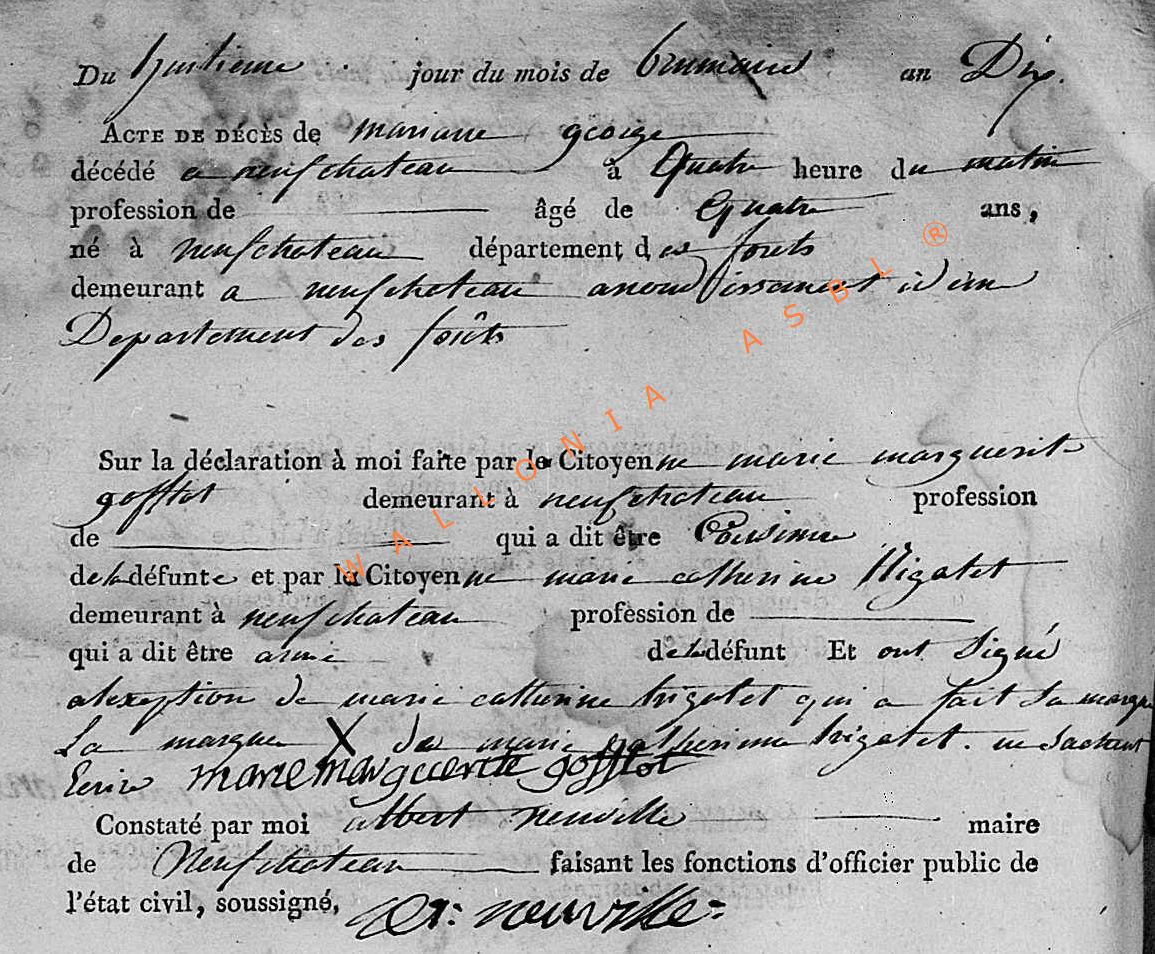 Du huitieme jour du mois de brumaire an Dix.
ACTE DE DÉCÈS de mariane george
décédé a neufchateau à quatre heure du matin
profession de âgé de quatre ans,
né à neufchateau département des forets
demeurant a neufchateau arrondissement idem
Departement des forêts
Sur la déclaration à moi faite par la Citoyenne marie marguerit
gofflot demeurant à neufchateau profession
de qui a dit être Cousinne
de la défunte et par la Citoyenne marie catherine
demeurant à neufchateau profession de
qui a dit être amie de la défunt Et ont Signé
alexeption de marie catherine qui a fait Sa marque
La marque X de marie catherinne ne Sachant
Ecrire marie marguerite gofflot
Constaté par moi albert neuville maire
de Neufchateau faisant les fonctions d'officier public de
l'état civil, soussigné, neuville
WALLONIA ASBL ®